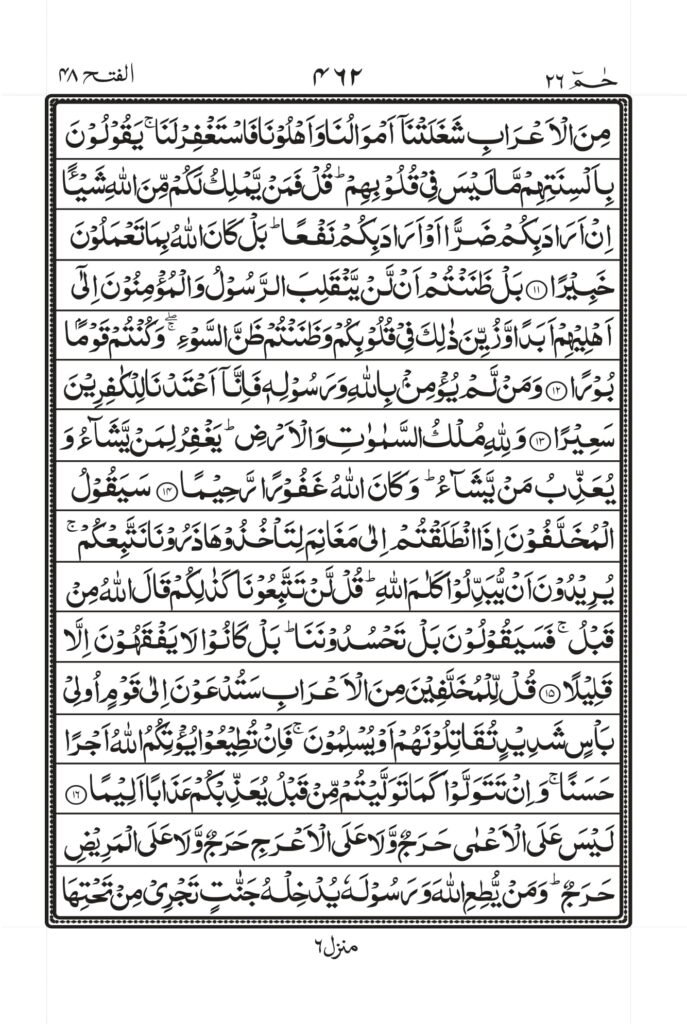 حٰمٓ ٢٦
٤٦٢
الفتح ٤٨
مِنَ الْاَعْرَابِ شَغَلَتْنَاۤ اَمْوَالُنَا وَاَهْلُوْنَا فَاسْتَغْفِرْلَنَا ۚ يَقُوْلُوْنَ
بِاَلْسِنَتِهِمْ مَّا لَيْسَ فِيْ قُلُوْبِهِمْ ؕ قُلْ فَمَنْ يَّمْلِكُ لَكُمْ مِّنَ اللّٰهِ شَيْـًٔا
اِنْ اَرَادَ بِكُمْ ضَرًّا اَوْ اَرَادَ بِكُمْ نَفْعًا ؕ بَلْ كَانَ اللّٰهُ بِمَا تَعْمَلُوْنَ
خَبِيْرًا ﴿١١﴾ بَلْ ظَنَنْتُمْ اَنْ لَّنْ يَّنْقَلِبَ الرَّسُوْلُ وَالْمُؤْمِنُوْنَ اِلٰۤى
اَهْلِيْهِمْ اَبَدًا وَّزُيِّنَ ذٰلِكَ فِيْ قُلُوْبِكُمْ وَظَنَنْتُمْ ظَنَّ السَّوْءِ ۖۚ وَكُنْتُمْ قَوْمًۢا
بُوْرًا ﴿١٢﴾ وَمَنْ لَّمْ يُؤْمِنْۢ بِاللّٰهِ وَرَسُوْلِهٖ فَاِنَّاۤ اَعْتَدْنَا لِلْكٰفِرِيْنَ
سَعِيْرًا ﴿١٣﴾ وَلِلّٰهِ مُلْكُ السَّمٰوٰتِ وَالْاَرْضِ ؕ يَغْفِرُ لِمَنْ يَّشَآءُ وَ
يُعَذِّبُ مَنْ يَّشَآءُ ؕ وَكَانَ اللّٰهُ غَفُوْرًا رَّحِيْمًا ﴿١٤﴾ سَيَقُوْلُ
الْمُخَلَّفُوْنَ اِذَا انْطَلَقْتُمْ اِلٰى مَغَانِمَ لِتَاْخُذُوْهَا ذَرُوْنَا نَتَّبِعْكُمْ ۚ
يُرِيْدُوْنَ اَنْ يُّبَدِّلُوْا كَلٰمَ اللّٰهِ ؕ قُلْ لَّنْ تَتَّبِعُوْنَا كَذٰلِكُمْ قَالَ اللّٰهُ مِنْ
قَبْلُ ۚ فَسَيَقُوْلُوْنَ بَلْ تَحْسُدُوْنَنَا ؕ بَلْ كَانُوْا لَا يَفْقَهُوْنَ اِلَّا
قَلِيْلًا ﴿١٥﴾ قُلْ لِّلْمُخَلَّفِيْنَ مِنَ الْاَعْرَابِ سَتُدْعَوْنَ اِلٰى قَوْمٍ اُولِيْ
بَاْسٍ شَدِيْدٍ تُقَاتِلُوْنَهُمْ اَوْ يُسْلِمُوْنَ ۚ فَاِنْ تُطِيْعُوْا يُؤْتِكُمُ اللّٰهُ اَجْرًا
حَسَنًا ۚ وَاِنْ تَتَوَلَّوْا كَمَا تَوَلَّيْتُمْ مِّنْ قَبْلُ يُعَذِّبْكُمْ عَذَابًا اَلِيْمًا ﴿١٦﴾
لَيْسَ عَلَى الْاَعْمٰى حَرَجٌ وَّلَا عَلَى الْاَعْرَجِ حَرَجٌ وَّلَا عَلَى الْمَرِيْضِ
حَرَجٌ ؕ وَمَنْ يُّطِعِ اللّٰهَ وَرَسُوْلَهٗ يُدْخِلْهُ جَنّٰتٍ تَجْرِيْ مِنْ تَحْتِهَا
منزل ٦